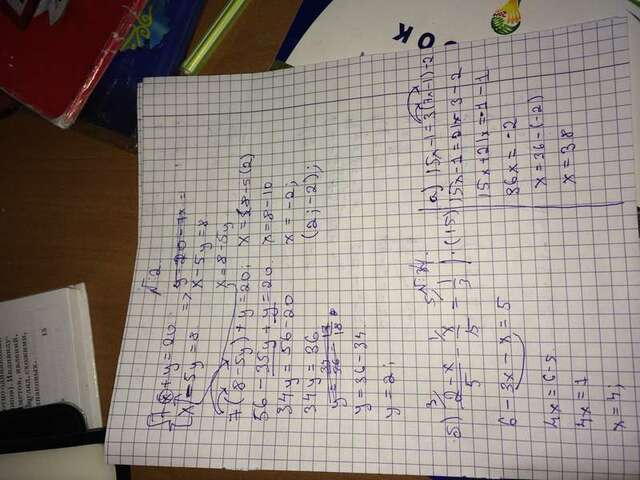 N2.
7x+y=20. => y=20-7x=
x-5y=8 x-5y=8
x=8-5y
7(8-5y)+y=20; x=8-5(2)
56-35y+y=20. x=8-10
34y=56-20 x=-2;
34y=36 (2;-2);
y=36-34
y=2;
б) 2-x/5 - x/5 = 1/3 |·(15)
6-3x-x=5
4x=6-5
4x=1
x=4;
а) 15x-1=3(7x-1)-2
15x-1=21x-3-2
15x+21x=-1-1
36x=-2
x=36-(-2)
x=38
ОК
13